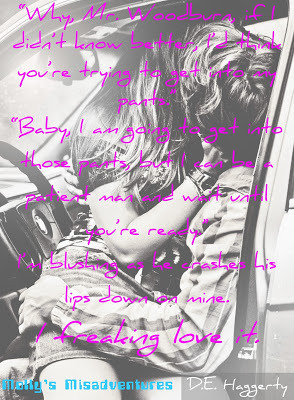 "Why, Mr. Woodburn, if I
didn't know better, I'd think
you're trying to get into my
pants."
"Baby, I am going to get into
those pants, but I can be a
patient man and wait until
you're ready."
I'm blushing as he crashes his
lips down on mine.
I freaking love it.
Molly's Misadventures D.E. Haggerty